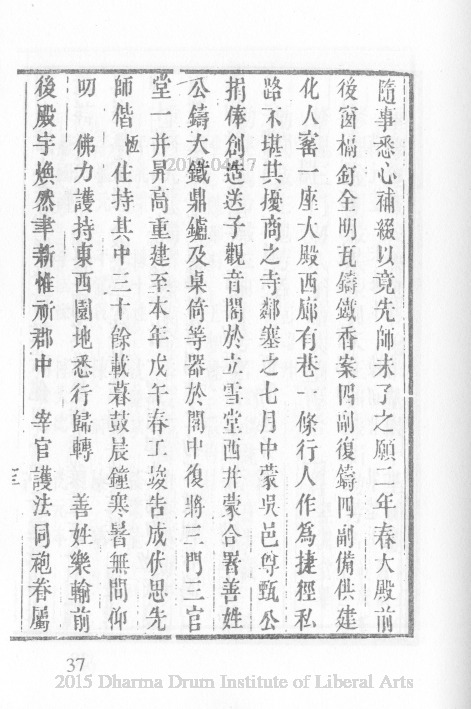 隨事悉心補綴以竟先師未了之願二年春大殿前
後窗槅釘全明瓦鑄鐵香案四副復鑄四副備供建
化人窰一座大殿西廊有巷一條行人作爲捷徑私
路不堪其擾商之寺鄰塞之七月中蒙吳邑尊甄公
捐俸創造送子觀音閣於立雪堂西并蒙合署善姓
公鑄大鐵鼎鑪及桌倚等器於閣中復將三門三官
堂一并昇高重建至本年戊午春工竣告成伏思先
師偕恆住持其中三十餘載暮鼓晨鐘寒暑無間仰
叨 佛力護持東西園地悉行歸轉 善姓樂輸前
後殿宇煥然聿新惟祈郡中 宰官護法同袍眷屬
三
2015-04-17
37
2015 Dharma Drum Institute of Liberal Arts